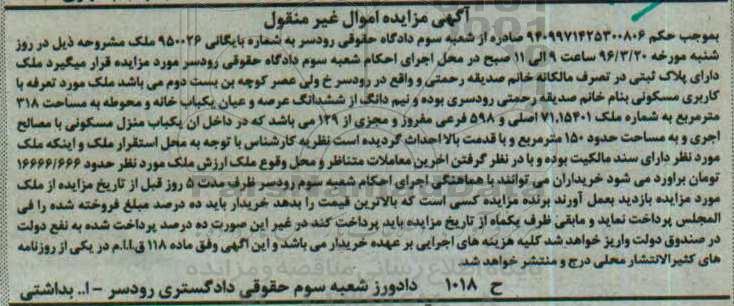 آگهی مزایده اموال غیر منقول
بموجب حکم ۹۴۰۹۹۷۱۴۲۵۳۰۰۸۰۶ صادره از شعبه سوم دادگاه حقوقی رودسر به شماره بایگانی ۹۵۰۰۲۶ ملک مشروحه ذیل در روز
شنبه مورخه ۹۶/۳/۲۰ ساعت ۹ الی ۱۱ صبح در محل اجرای احکام شعبه سوم دادگاه حقوقی رودسر مورد مزایده قرار میگیرد ملک
دارای پلاک ثبتی در تصرف مالکانه خانم صدیقه رحمتی و واقع در رودسر خ ولی عصر کوچه بن بست دوم می باشد ملک مورد تعرفه با
کاربری مسکونی بنام خانم صدیقه رحمتی رودسری بوده و نیم دانگ از ششدانگ عرصه و عیان یکباب خانه و محوطه به مساحت ۳۱۸
مترمربع به شماره ملک ۷۱,۱۵۴۰۱ اصلی و ۵۹۸ فرعی مفروز و مجزی از ۱۲۹ می باشد که در داخل ان یکباب منزل مسکونی با مصالح
اجری و به مساحت حدود ۱۵۰ مترمربع و با قدمت بالا احداث گردیده است نظریه کارشناس با توجه به محل استقرار ملک و اینکه ملک
مورد نظر دارای سند مالکیت بوده و با در نظر گرفتن اخرین معاملات متناظر و محل وقوع ملک ارزش ملک مورد نظر حدود ۱۶۶۶۶/۶۶۶
تومان براورد می شود خریداران می توانند با هماهنگی اجرای احکام شعبه سوم رودسر ظرف مدت ۵ روز قبل از تاریخ مزایده از ملک
مورد مزایده بازدید بعمل آورند برنده مزایده کسی است که بالاترین قیمت را بدهد خریدار باید ده درصد مبلغ فروخته شده را فی
المجلس پرداخت نماید و مابقی ظرف یکماه از تاریخ مزایده باید پرداخت کند در غیر این صورت ده درصد پرداخت شده به نفع دولت
در صندوق دولت واریز خواهد شد کلیه هزینه های اجرایی بر عهده خریدار می باشد و این اگهی وفق ماده ۱۱۸ ق.ا.ا.م در یکی از روزنامه
های کثیرالانتشار محلی درج و منتشر خواهد شد
ح ۱۰۱۸ دادورز شعبه سوم حقوقی دادگستری رودسر – ا.. بداشتی